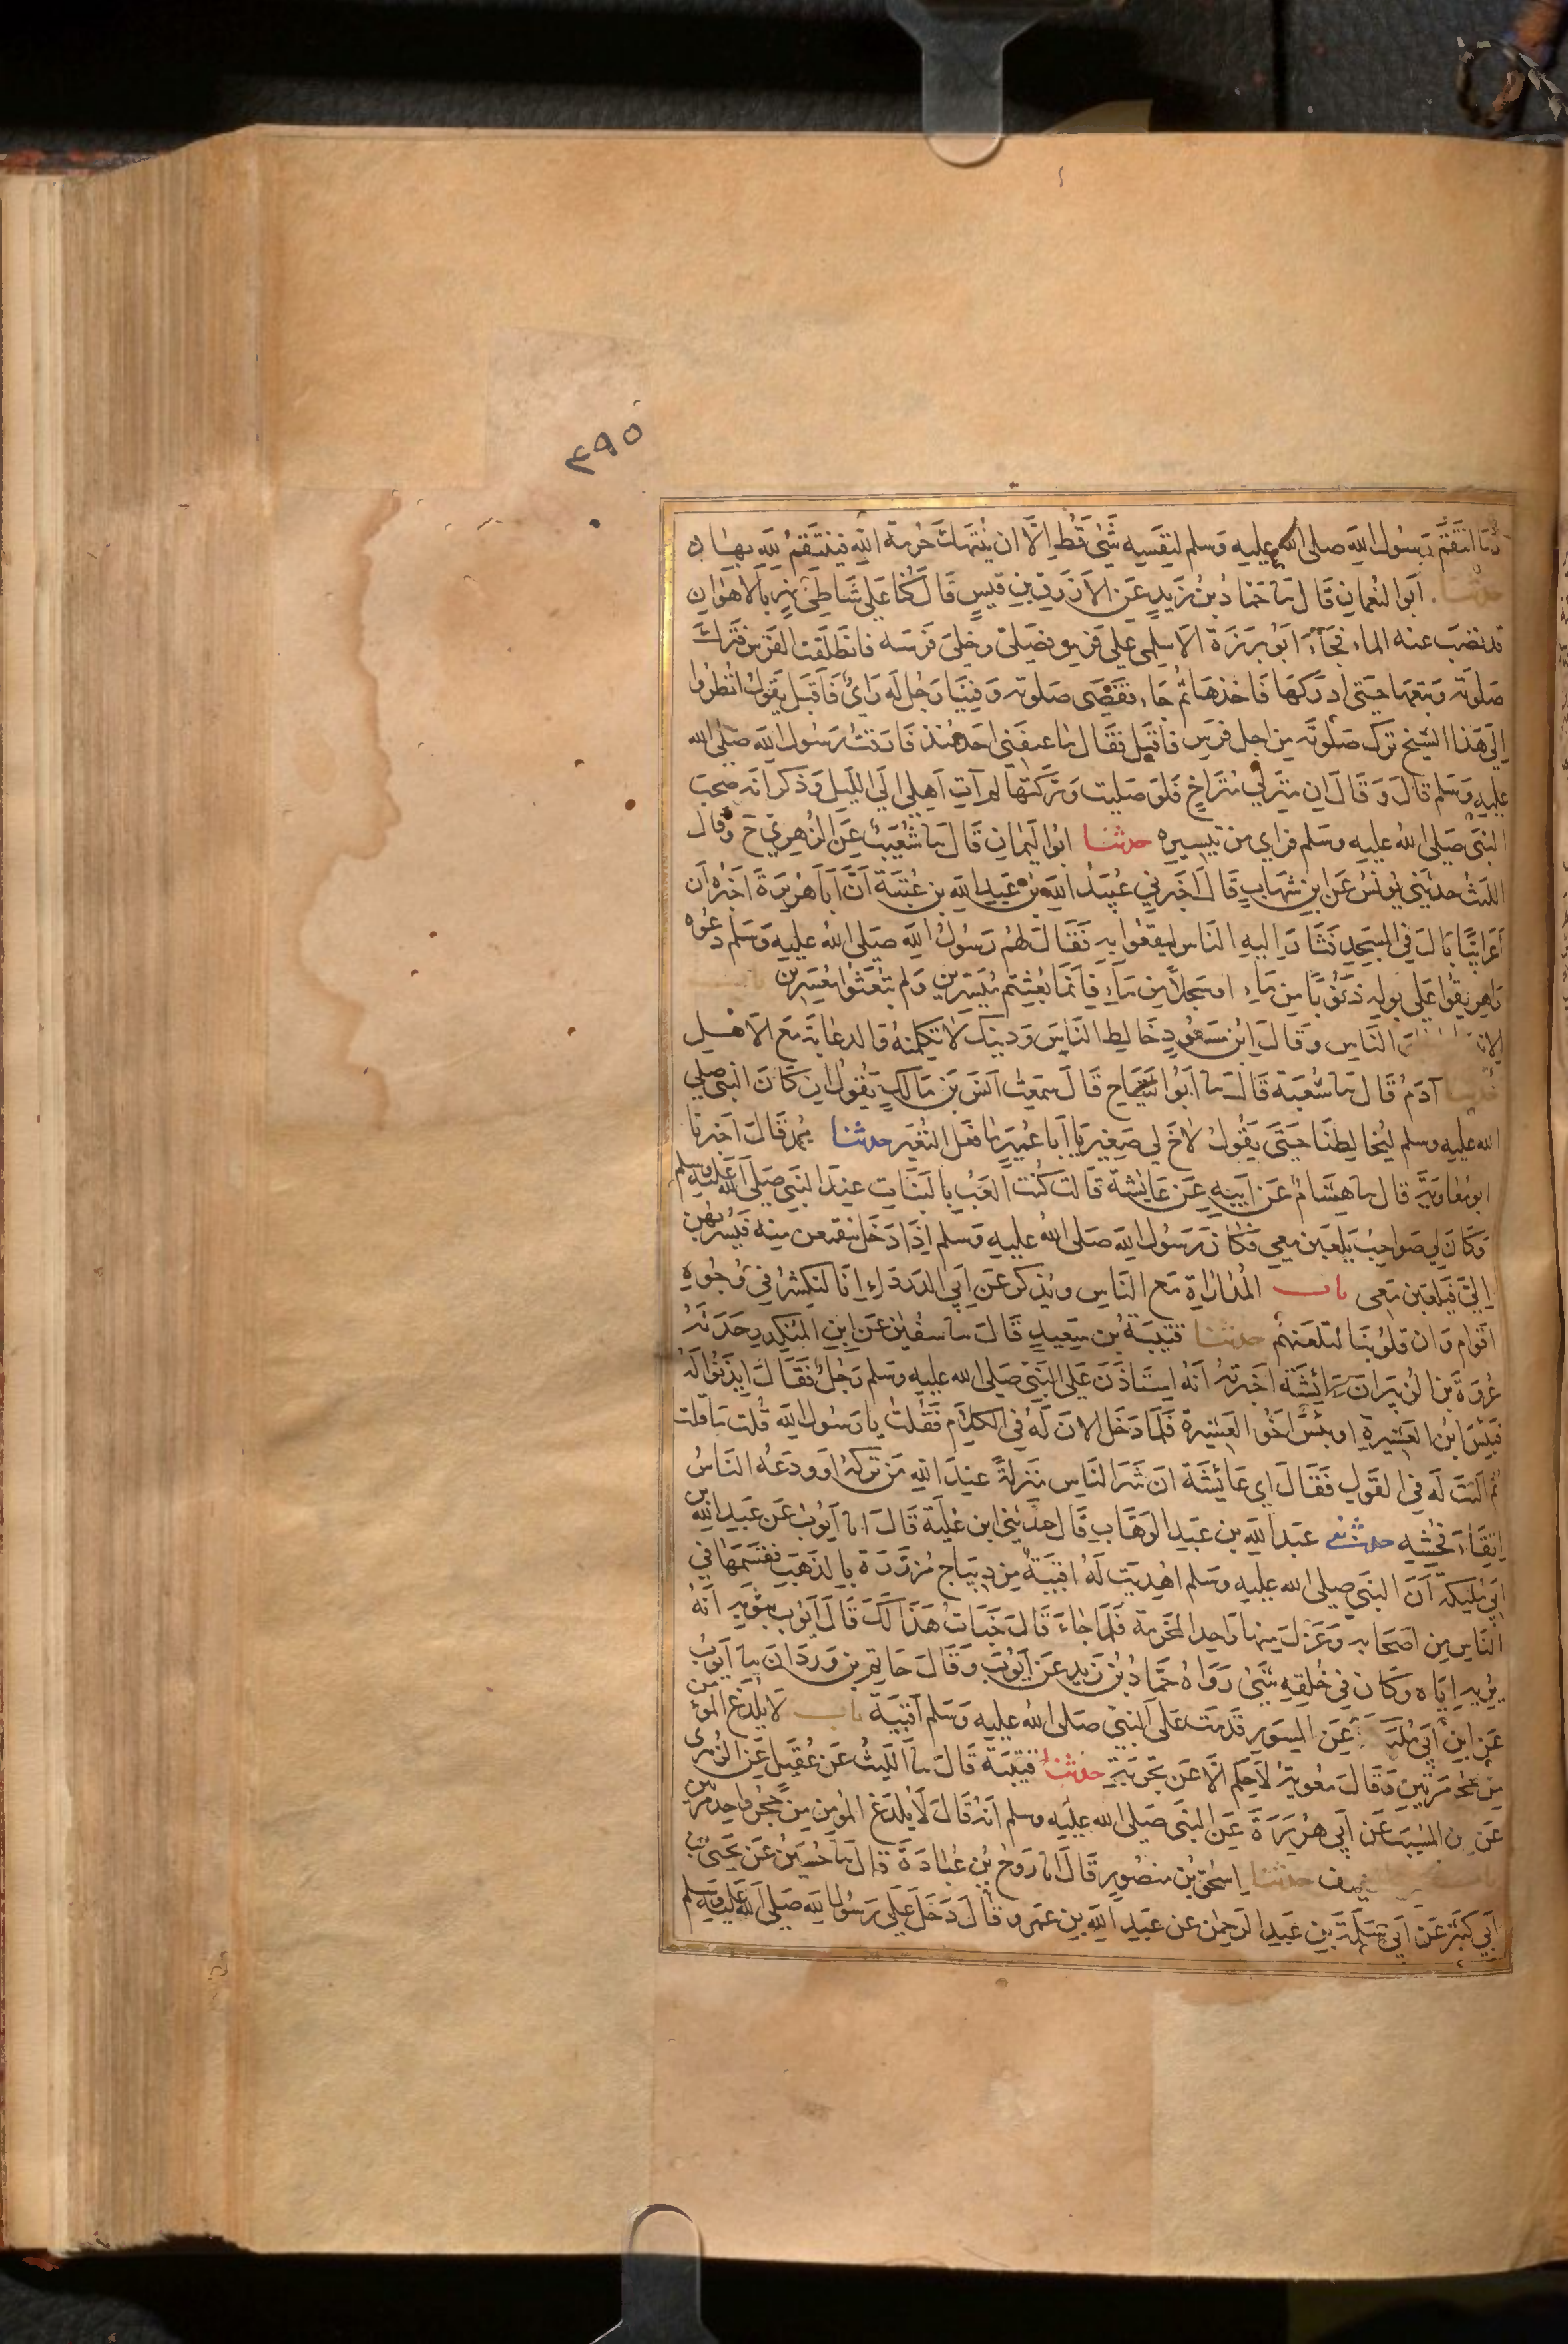 ٤٩٥
وما انتقم رسول الله صلى الله عليه وسلم لنفسه شئ قط الا ان تنتهك حرمة الله فينتقم لله بها
حدثنا ابو النعمان قال نا حماد بن زيد عن الازرق بن قيس قال كنا على شاطئ نهر بالاهواز
قد نضب عنه الماء فجاء ابو برزة الاسلمى على فرس فصلى وخلى فرسه فانطلقت الفرس فترك
صلوته وتبعها حتى ادركها فاخذها ثم جاء فقضى صلوته وفينا رجل له راى فاقبل يقول انظروا
الى هذا الشيخ ترك صلوته من اجل فرس فاقبل فقال ما عنفنى احد منذ فارقت رسول الله صلى الله
عليه وسلم قال وقال ان منزلى متراخ فلو صليت وتركتها لم آت اهلى الى الليل وذكر انه صحب
النبى صلى الله عليه وسلم فراى من تيسيره حدثنا ابو اليمان قال نا شعيب عن الزهرى ح وقال
الليث حدثنى يونس عن ابن شهاب قال اخبرنى عبيد الله بن عبد الله بن عتبة ان ابا هريرة اخبره ان
اعرابيا بال فى المسجد فثار اليه الناس ليقعوا به فقال لهم رسول الله صلى الله عليه وسلم دعوه
واهريقوا على بوله ذنوبا من ماء او سجلا من ماء فانما بعثتم ميسرين ولم تبعثوا معسرين باب
الناس وقال ابن مسعود خالط الناس ودينك لا تكلمنه والدعابة مع الاهل
حدثنا آدم قال نا شعبة قال نا ابو التياح قال سمعت انس بن مالك يقول ان كان النبى صلى
الله عليه وسلم ليخالطنا حتى يقول لاخ لى صغير يا ابا عمير ما فعل النغير حدثنا محمد قال اخبرنا
ابو معاوية قال نا هشام عن ابيه عن عايشة قالت كنت العب بالبنات عند النبى صلى الله عليه وسلم
وكان لى صواحب يلعبن معى فكان رسول الله صلى الله عليه وسلم اذا دخل ينقمعن منه فيسربهن
الى فيلعبن معى باب المداراة مع الناس ويذكر عن ابى الدرداء انا لنكشر فى وجوه
اقوام وان قلوبنا لتلعنهم حدثنا قتيبة بن سعيد قال نا سفين عن ابن المنكدر حدثه
عروة بن الزبير ان عائشة اخبرته انه استاذن على النبى صلى الله عليه وسلم رجل فقال ايذنوا له
فبئس ابن العشيرة او بئس اخو العشيرة فلما دخل الان له فى الكلام فقلت يا رسول الله قلت ما قلت
ثم النت له فى القول فقال اى عائشة ان شر الناس منزلة عند الله من تركه او ودعه الناس
اتقاء فحشه حدثنى عبد الله بن عبد الوهاب قال حدثنى ابن علية قال انا ايوب عن عبد الله بن
ابى مليكة ان النبى صلى الله عليه وسلم اهديت له اقبية من ديباج مزررة بالذهب فقسمها فى
الناس من اصحابه وعزل منها واحدا لمخرمة فلما جاء قال خبات هذا لك قال ايوب بثوبه انه
يريه اياه وكان فى خلقه شئ رواه حماد بن زيد عن ايوب وقال حاتم بن وردان نا ايوب
عن ابن ابى مليكة عن المسور قدمت على النبى صلى الله عليه وسلم اقبية باب لا يلدغ المؤمن
من جحر مرتين وقال معوية لا حكم الا عن تجربة حدثنا قتيبة قال نا الليث عن عقيل عن الزهرى
عن ابن المسيب عن ابى هريرة عن النبى صلى الله عليه وسلم انه قال لا يلدغ المؤمن من جحر واحد مرتين
باب حدثنا اسحق بن منصور قال انا روح بن عبادة قال نا حسين عن يحيى بن
ابى كثير عن ابى سلمة بن عبد الرحمن عن عبد الله بن عمرو قال دخل على رسول الله صلى الله عليه وسلم